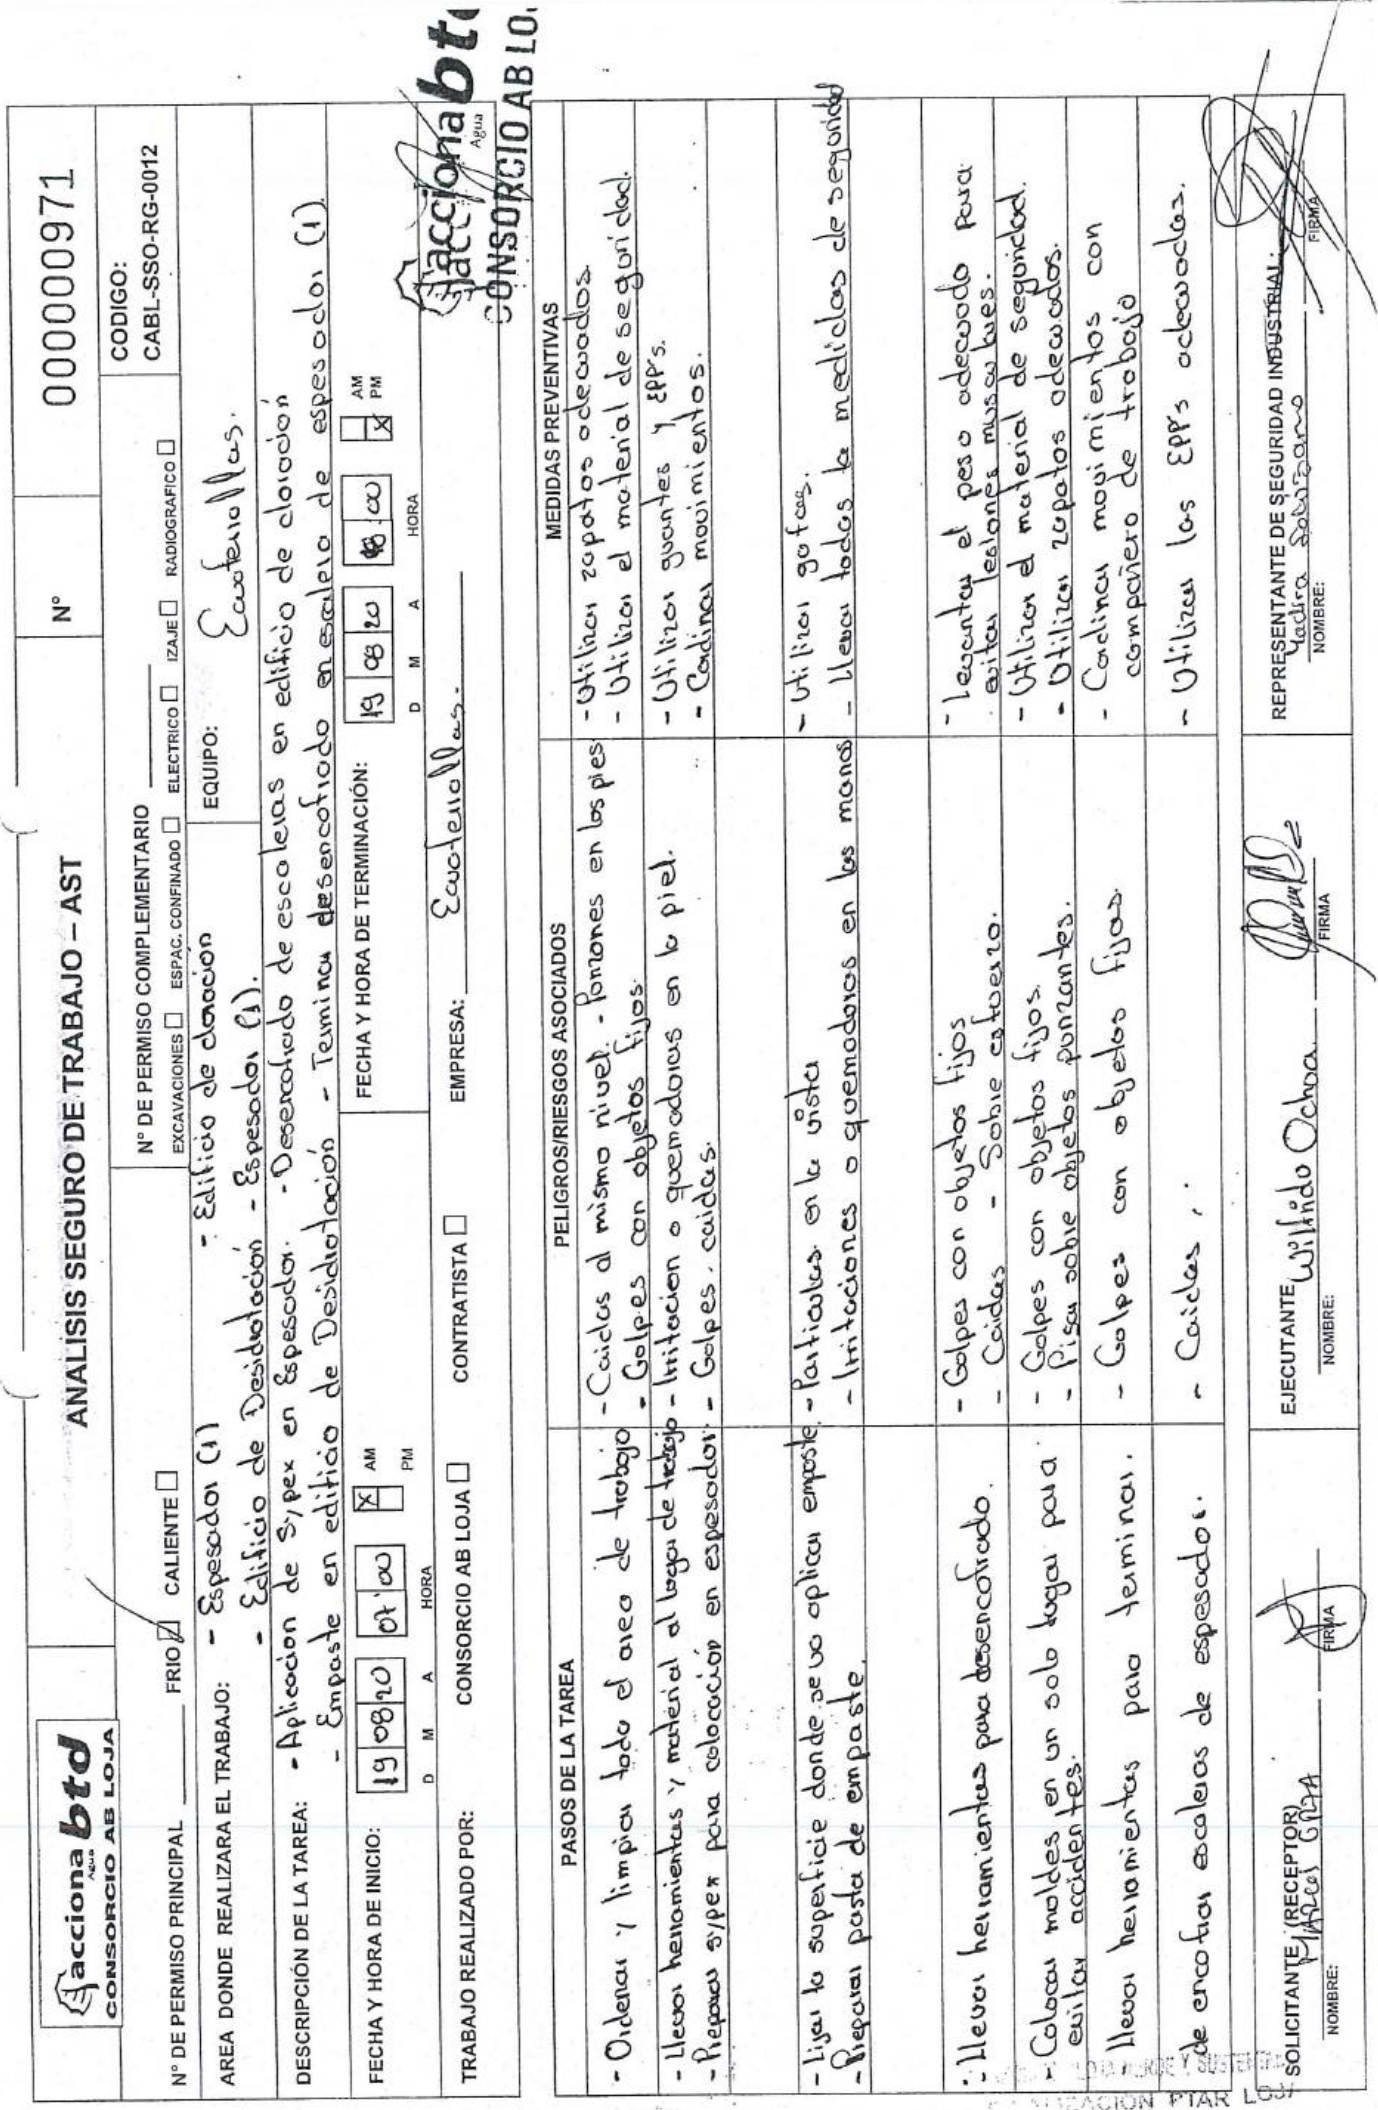 acciona btd
Agua
CONSORCIO AB LOJA
ANALISIS SEGURO DE TRABAJO – AST
N°
000000971
N° DE PERMISO PRINCIPAL
FRIO
CALIENTE
N° DE PERMISO COMPLEMENTARIO
EXCAVACIONES ESPAC. CONFINADO ELECTRICO IZAJE RADIOGRAFICO
CODIGO:
CABL-SSO-RG-0012
AREA DONDE REALIZARA EL TRABAJO:
- Espesador (1)
- Edificio de cloración
- Edificio de Desidratación - Espesador (1).
EQUIPO:
Ecuaterollas.
DESCRIPCIÓN DE LA TAREA:
- Aplicación de Sypex en Espesador. - Desencofrado de escaleras en edificio de cloración
- Empaste en edificio de Desidratación - Terminar desencofrado en escalera de espesador (1).
FECHA Y HORA DE INICIO:
19 08 20 07:00 X AM
PM
D M A HORA
FECHA Y HORA DE TERMINACIÓN:
19 08 20 :00 AM
X PM
D M A HORA
TRABAJO REALIZADO POR:
CONSORCIO AB LOJA
CONTRATISTA
EMPRESA:
acciona btd
Agua
CONSORCIO AB LO
PASOS DE LA TAREA
PELIGROS/RIESGOS ASOCIADOS
MEDIDAS PREVENTIVAS
- Ordenar y limpiar todo el area de trabajo
- Caidas al mismo nivel. - Ponzones en los pies
- Golpes con objetos fijos.
- Utilizar zapatos adecuados.
- Utilizar el material de seguridad.
- Llevar herramientas y material al lugar de trabajo
- Irritacion o quemaduras en la piel.
- Utilizar guantes y EPP's.
- Preparar sypex para colocación en espesador.
- Golpes, caidas.
- Cordinar movimientos.
- Lijar la superficie donde se va aplicar empaste.
- Preparar pasta de empaste.
- Particulas en la vista
- Irritaciones o quemaduras en las manos
- Utilizar gafas.
- Llevar todas la medidas de seguridad
- Llevar herramientas para desencofrado.
- Golpes con objetos fijos
- Caidas - Sobre esfuerzo.
- Levantar el peso adecuado para
evitar lesiones musculares.
- Colocar moldes en un solo lugar para
evitar accidentes.
- Golpes con objetos fijos.
- Pisar sobre objetos punzantes.
- Utilizar el material de seguridad.
- Utilizar zapatos adecuados.
llevar herramientas para terminar.
- Golpes con objetos fijos.
- Cordinar movimientos con
compañero de trabajo
de encofrar escaleras de espesador.
- Caidas.
- Utilizar las EPP's adecuadas.
SOLICITANTE (RECEPTOR)
NOMBRE:
FIRMA
EJECUTANTE
Wilfrido Ochoa
NOMBRE:
FIRMA
REPRESENTANTE DE SEGURIDAD INDUSTRIAL:
NOMBRE:
FIRMA
PTAR